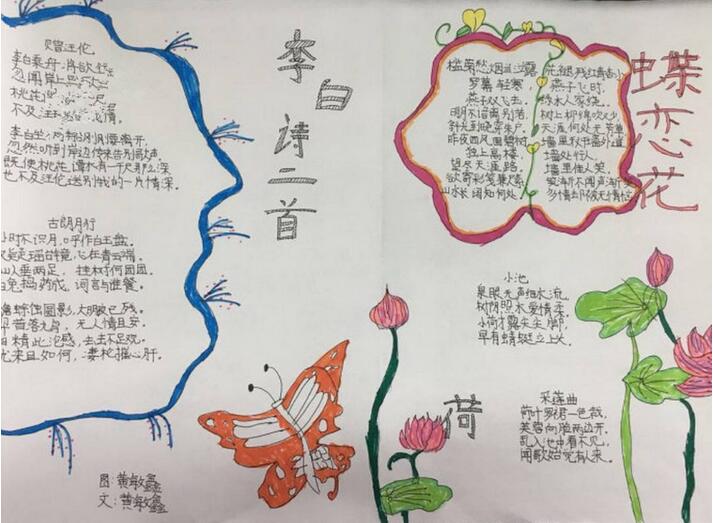 赠汪伦
李白乘舟将欲
忽闻岸上
桃花
不及汪 情
李白坐
忽然听到岸边传来告别歌声。
既使桃花潭水有一千尺那么深
也不及汪伦送别我的一片情深
古朗月行
小时不识月，呼作白玉盘。
疑瑶台镜，飞在青云端。
仙人垂两足，桂树何团团。
白兔捣药成，问言与谁餐。
蟾蜍蚀圆影，大明夜已残。
羿昔落九乌，天人清且安。
精此沦惑，去去不足观。
忧来且如何，凄怆摧心肝。
李白诗二首
图:黄敏鑫
文:黄敏鑫
蝶恋花
槛菊愁烟兰泣露
罗幕轻寒
燕子双飞去。
明月不谙离别苦
斜光到晓穿朱户。
昨夜西风凋碧树
独上高楼，
望尽天涯路，
欲寄彩笺兼尺素
山水长阔知何处。
花褪残红青杏小
燕子飞时，
绿水人家绕。
树上柳绵吹又少
天涯何处无芳草
墙里秋千墙外道
墙外行人，
墙里佳人笑，
笑渐不闻声渐
多情却被无情恼
小池
泉眼无声细水流，
树阴照水爱情柔。
小荷才露尖尖脚，
早有蜻蜓立上头。
荷
采莲曲
荷叶罗裙一色裁，
芙蓉向脸两边开。
乱入池中看不见，
闻歌始觉有人来。